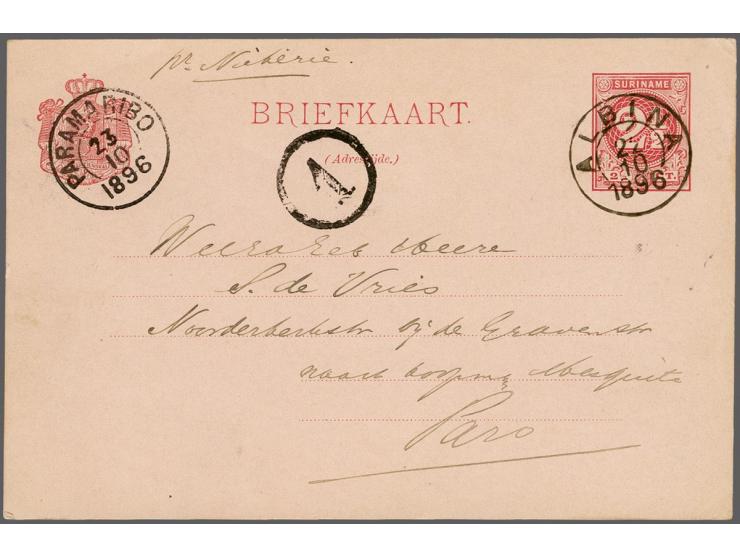 pr Nickerie.
PARAMARIBO
23
10
1896
BRIEFKAART.
(Adreszijde.)
1
SURINAME
ALBINA
22
10
1896
S. de Vries
bij de Gravenstr
naast
Mesquita
Paro